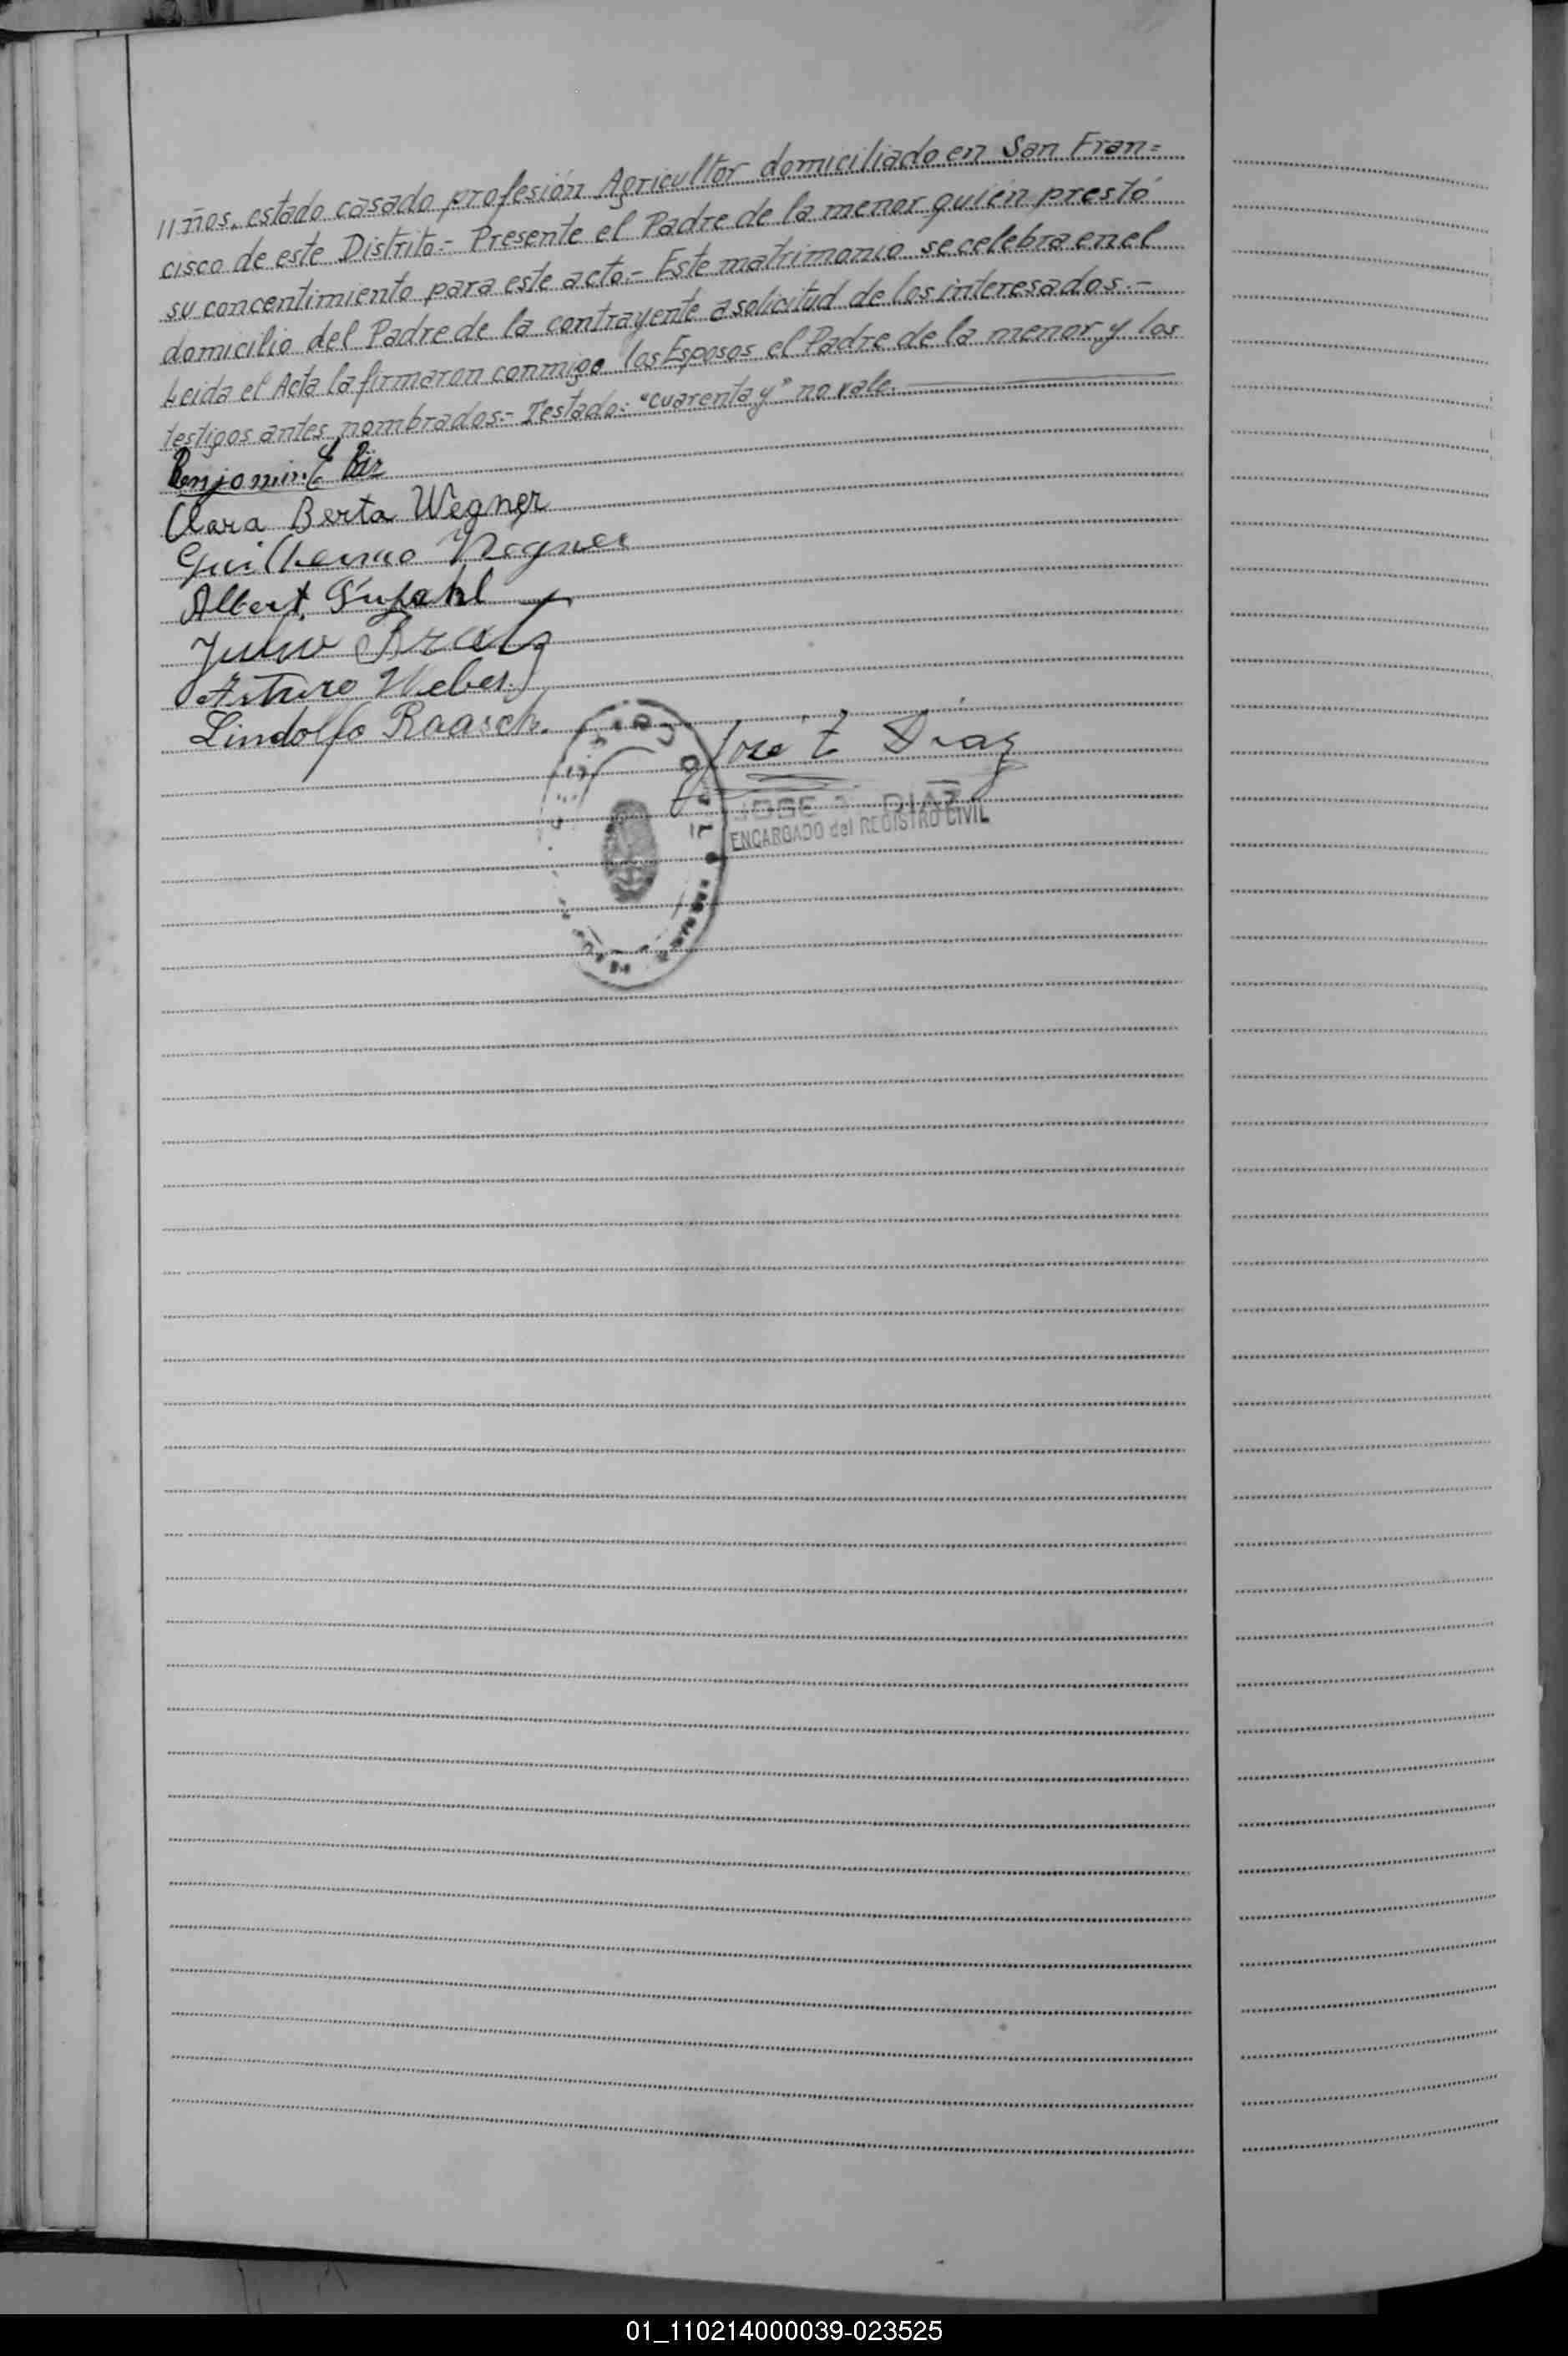 años, estado casado profesión Agricultor domiciliado en San Fran=
cisco de este Distrito.- Presente el Padre de la menor quién prestó
su concentimiento para este acto.- Este matrimonio se celebra en el
domicilio del Padre de la contrayente a solicitud de los interesados.-
Leida el Acta la firmaron conmigo los Esposos el Padre de la menor y los
testigos antes nombrados.- Testado: "cuarenta y" no vale.
Benjomin
Clara Berta Wegner
Guilhermo Wegner
Albert
Julio
Arturo Weber
Lindolfo Raasch.
José E Diaz
JOSE DIAZ
ENCARGADO del REGISTRO CIVIL
01_110214000039-023525